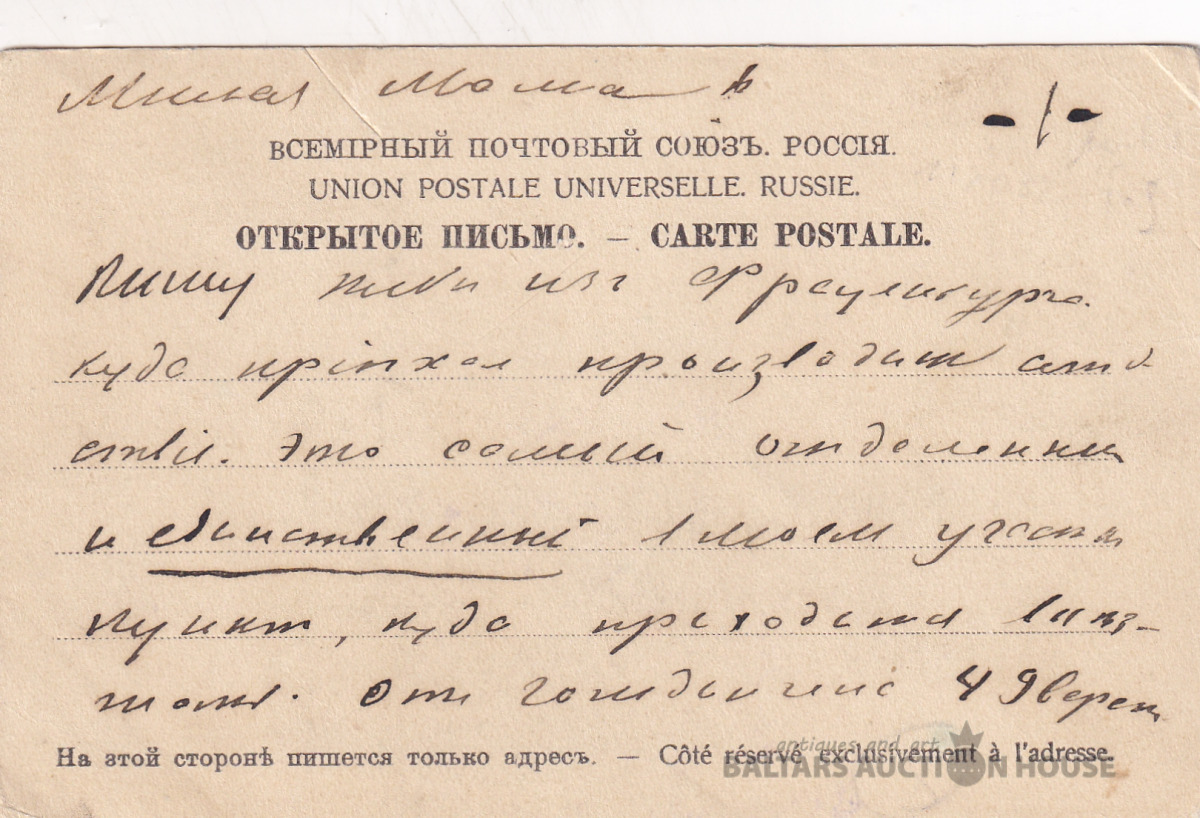 Милая Мама
- 1 -
ВСЕМІРНЫЙ ПОЧТОВЫЙ СОЮЗЪ. РОССІЯ.
UNION POSTALE UNIVERSELLE. RUSSIE.
ОТКРЫТОЕ ПИСЬМО. — CARTE POSTALE.
Пишу изъ Фрауенбурга
куда пріѣхал производит
ствія. Это самый отдаленный
и единственный в моем участкѣ
пункт, куда приходится
От 49 верст
На этой сторонѣ пишется только адресъ. — Côté réservé exclusivement à l'adresse.
antiques and art
BALTARS AUCTION HOUSE